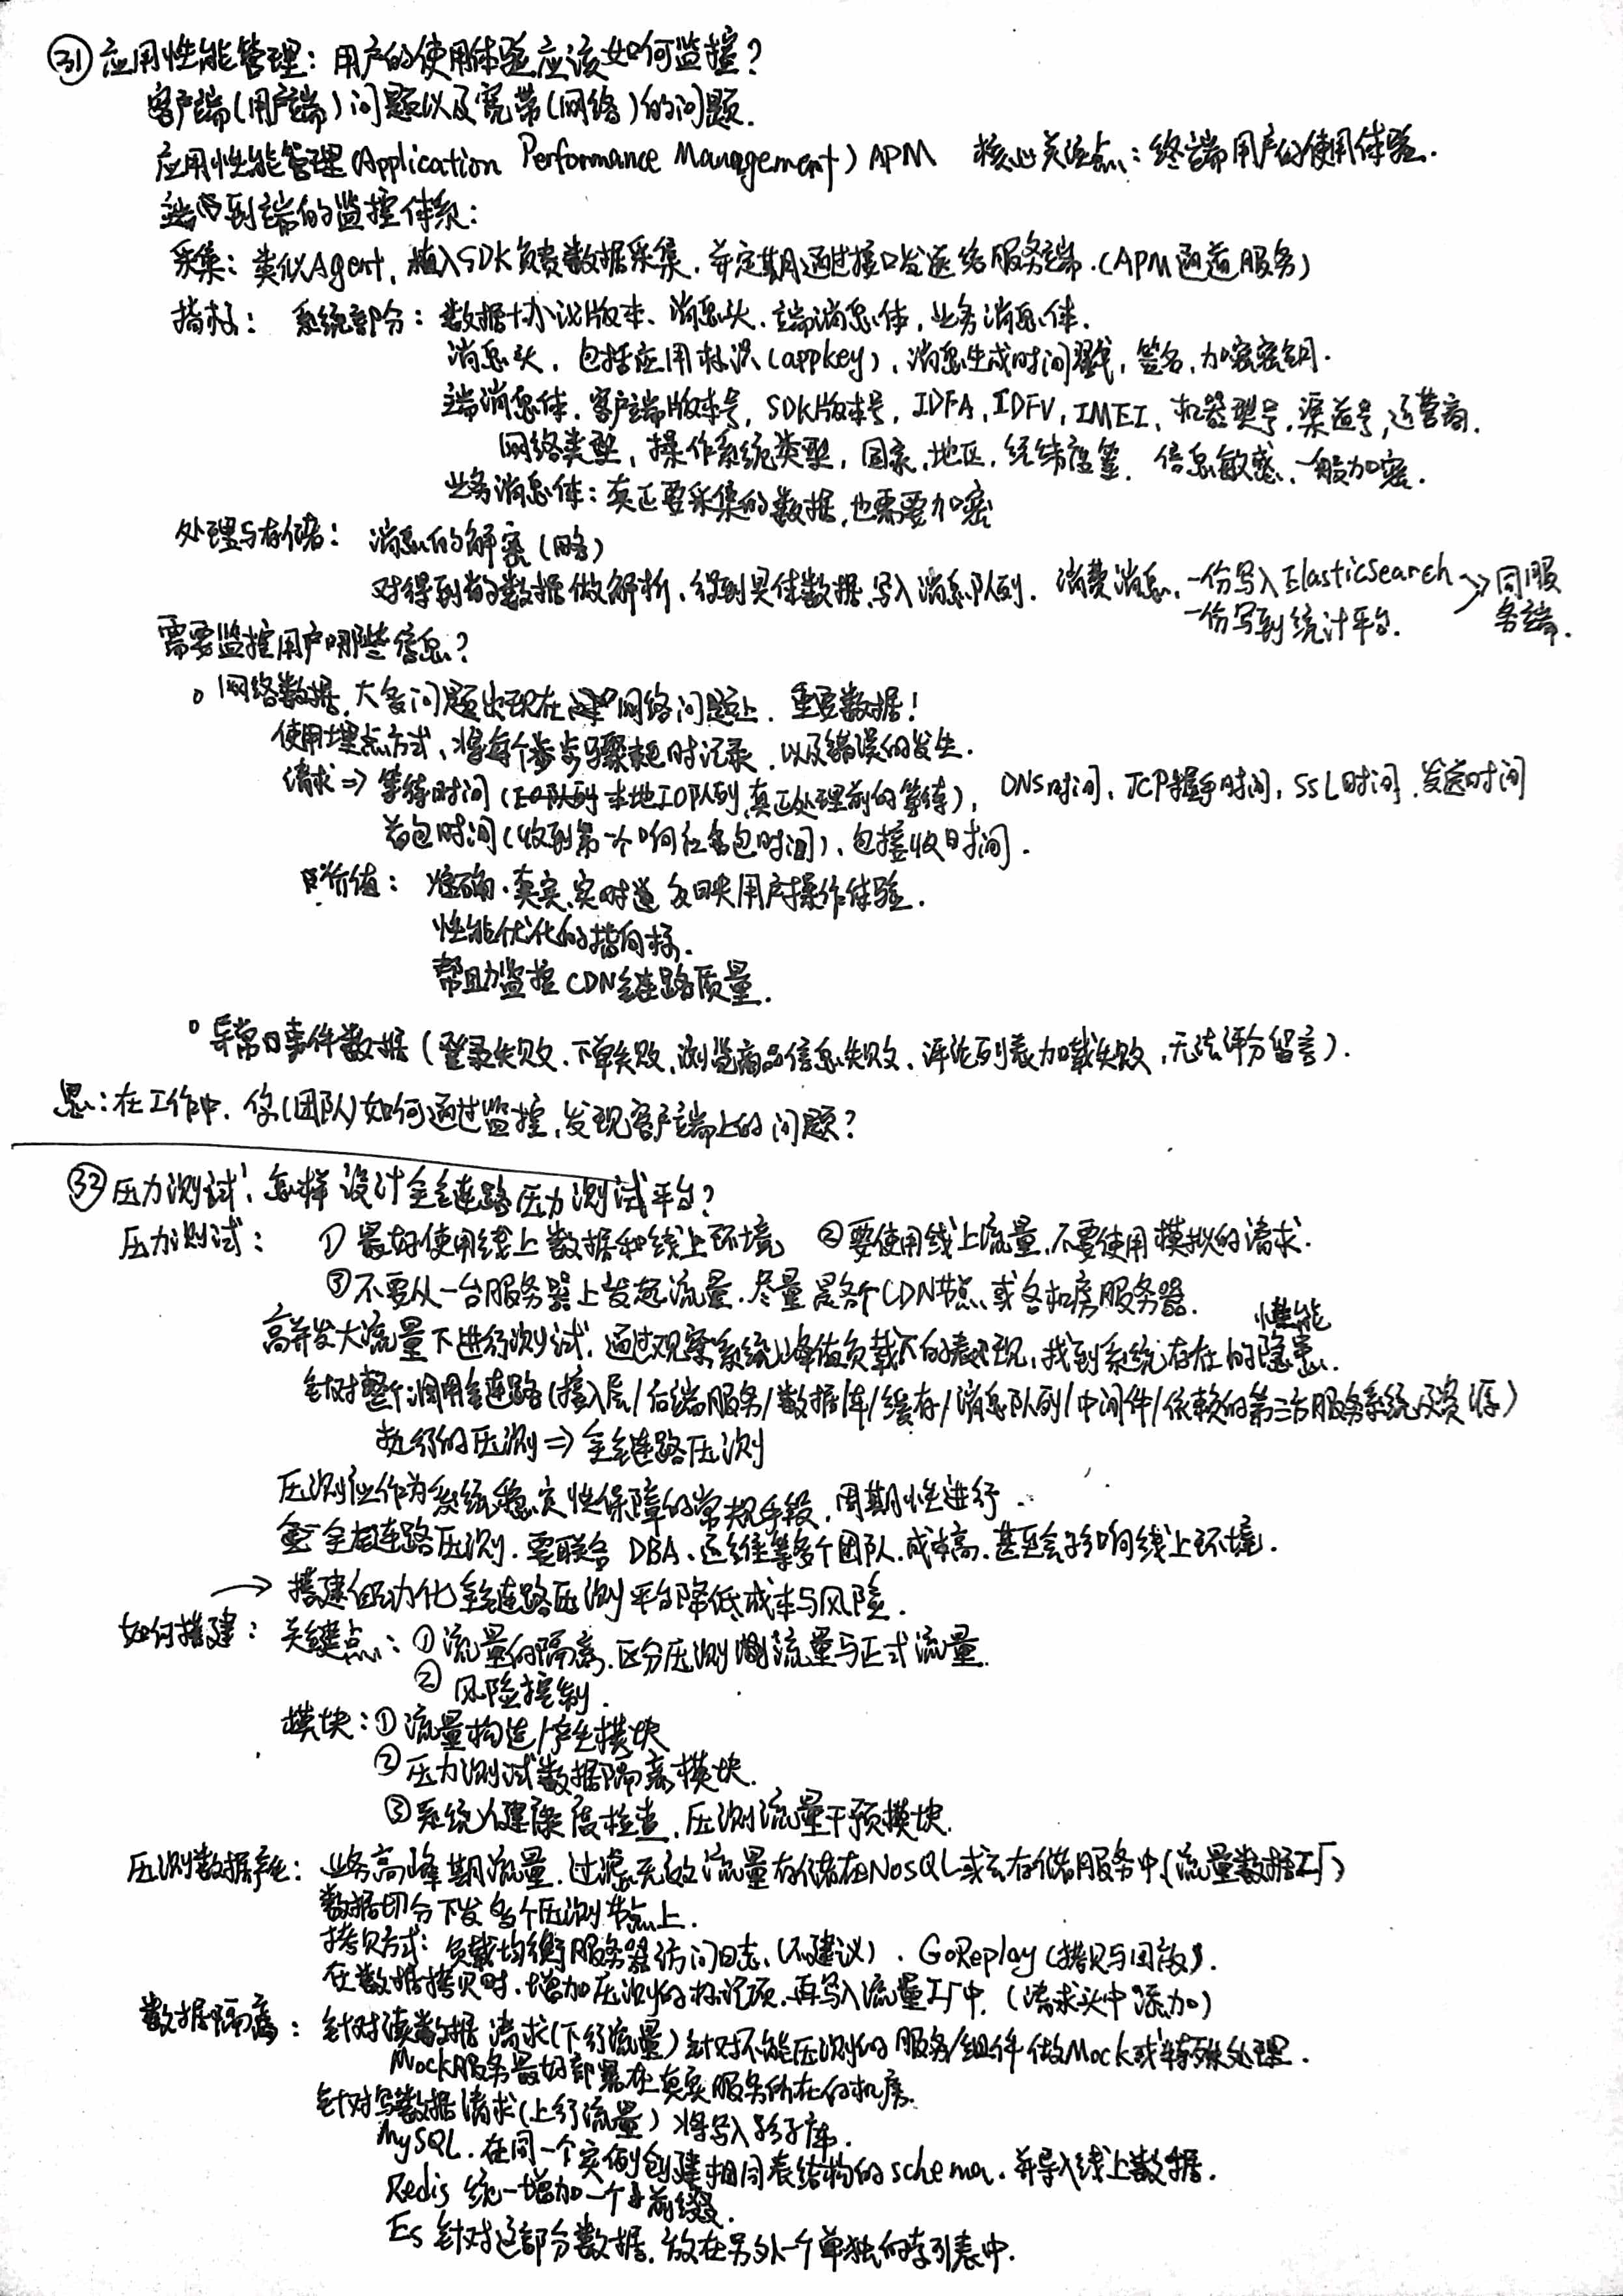 ㉛ 应用性能管理：用户的使用体验应该如何监控？
客户端（用户端）问题以及宽带（网络）的问题.
应用性能管理（Application Performance Management）APM 核心关注点：终端用户的使用体验.
端到端的监控体系：
采集：类似Agent，植入SDK负责数据采集，并定期通过接口发送给服务端.（APM通道服务）
指标： 系统部分：数据协议版本、消息头、端消息体，业务消息体.
消息头，包括应用标识（appkey），消息生成时间戳，签名，加密密钥.
端消息体，客户端版本号，SDK版本号，IDFA，IDFV，IMEI，机器型号，渠道号，运营商.
网络类型，操作系统类型，国家，地区，经纬度等. 信息敏感，一般加密.
业务消息体：真正要采集的数据，也需要加密
处理与存储： 消息的解密（略）
对得到的数据做解析，得到具体数据，写入消息队列. 消费消息，一份写入Elasticsearch → 同服
一份写到统计平台. 务端.
需要监控用户哪些信息？
○ 网络数据，大多问题出现在网络问题上. 重要数据！
使用埋点方式，将每个步骤耗时记录，以及错误的发生.
请求 ⇒ 等待时间（本地IO队列，真正处理前的等待），DNS时间，TCP握手时间，SSL时间，发送时间
首包时间（收到第一个响应包时间），包接收时间.
价值： 准确，真实，实时 反映用户操作体验.
性能优化的指向标.
帮助监控CDN链路质量.
○ 异常事件数据（登录失败，下单失败，浏览商品信息失败，评论列表加载失败，无法评分留言）.
思：在工作中，你（团队）如何通过监控，发现客户端上的问题？
㉜ 压力测试：怎样设计全链路压力测试平台？
压力测试： ① 最好使用线上数据和线上环境 ② 要使用线上流量，不要使用模拟的请求.
③ 不要从一台服务器上发起流量，尽量是各个CDN节点或各机房服务器.
性能
高并发大流量下进行测试，通过观察系统峰值负载下的表现，找到系统存在的隐患.
针对整个调用链路（接入层/后端服务/数据库/缓存/消息队列/中间件/依赖的第三方服务系统及资源）
执行的压测 ⇒ 全链路压测
压测应作为系统稳定性保障的常规手段，周期性进行.
全链路压测，要联合DBA、运维等多个团队，成本高，甚至会影响线上环境.
→ 搭建自动化全链路压测平台降低成本与风险.
如何搭建： 关键点：① 流量的隔离，区分压测流量与正式流量.
② 风险控制.
模块：① 流量构造/产生模块
② 压力测试数据隔离模块.
③ 系统健康度检查，压测流量干预模块.
压测数据产生： 业务高峰期流量，过滤无效流量存储在NoSQL或云存储服务中（流量数据工厂）
数据切分下发各个压测节点上.
拷贝方式：负载均衡服务器访问日志（不建议）. GoReplay（拷贝与回放）.
在数据拷贝时，增加压测的标识项，再写入流量工厂中.（请求头中添加）
数据隔离： 针对读数据请求（下行流量）针对不能压测的服务/组件做Mock或特殊处理.
Mock服务最好部署在真实服务所在的机房.
针对写数据请求（上行流量）将写入影子库.
MySQL，在同一个实例创建相同表结构的schema，并导入线上数据.
Redis 统一增加一个前缀.
Es 针对这部分数据，放在另外一个单独的索引表中.